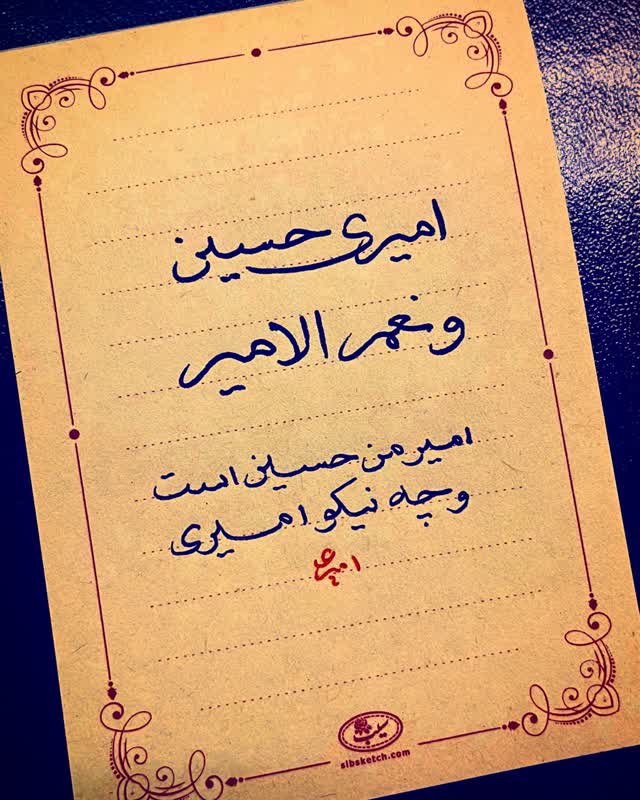 امیری حسین
ونعم الامیر
امیر من حسین است
وچه نیکو امیری
سیب
slbsketch.com